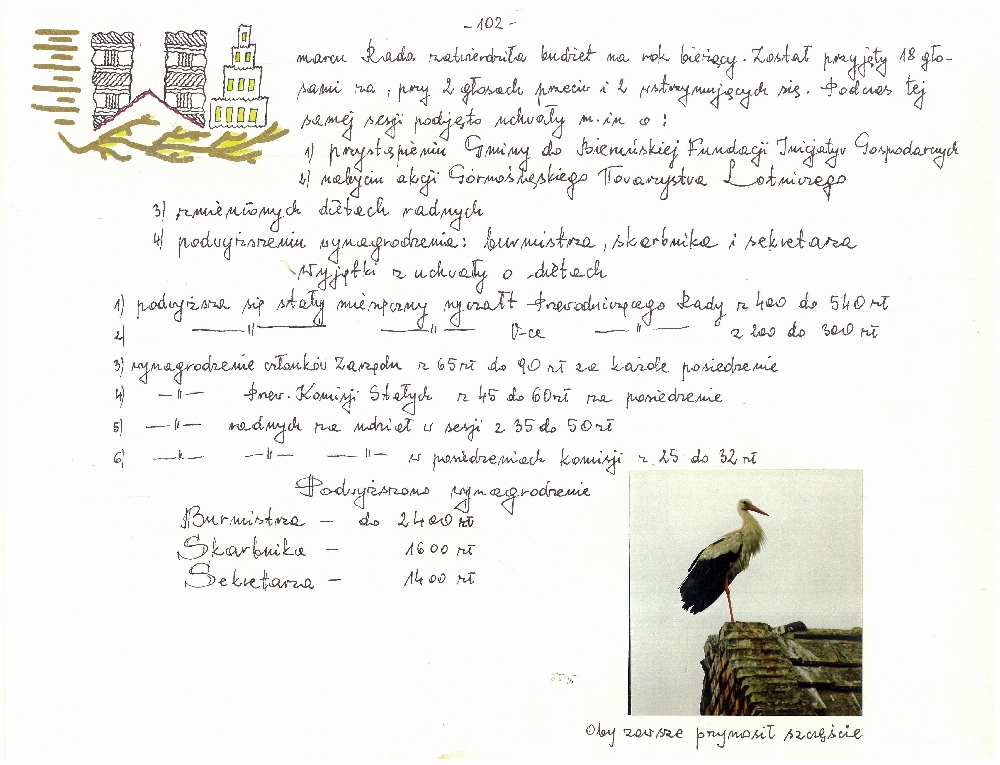 - 102 -
marcu Rada zatwierdziła budżet na rok bieżący. Został przyjęty 18 gło-
sami za, przy 2 głosach przeciw i 2 wstrzymujących się. Podczas tej
samej sesji podjęto uchwały m.in o :
1) przystąpieniu Gminy do Bieruńskiej Fundacji Inicjatyw Gospodarczych
2) nabyciu akcji Górnośląskiego Towarzystwa Lotniczego
3) zmienionych dietach radnych
4) podwyższeniu wynagrodzenia: burmistrza, skarbnika i sekretarza
Wyjątki z uchwały o dietach
1) podwyższa się stały miesięczny ryczałt Przewodniczącego Rady z 400 do 540 zł
2) —"— —"— V-ce —"— z 200 do 300 zł
3) wynagrodzenie członków Zarządu z 65 zł do 90 zł za każde posiedzenie
4) —"— Przew. Komisji Stałych z 45 do 60 zł za posiedzenie
5) —"— radnych za udział w sesji z 35 do 50 zł
6) —"— —"— —"— w posiedzeniach komisji z 25 do 32 zł
Podwyższono wynagrodzenie
Burmistrza — do 2400 zł
Skarbnika — 1600 zł
Sekretarza — 1400 zł
Oby zawsze przynosił szczęście